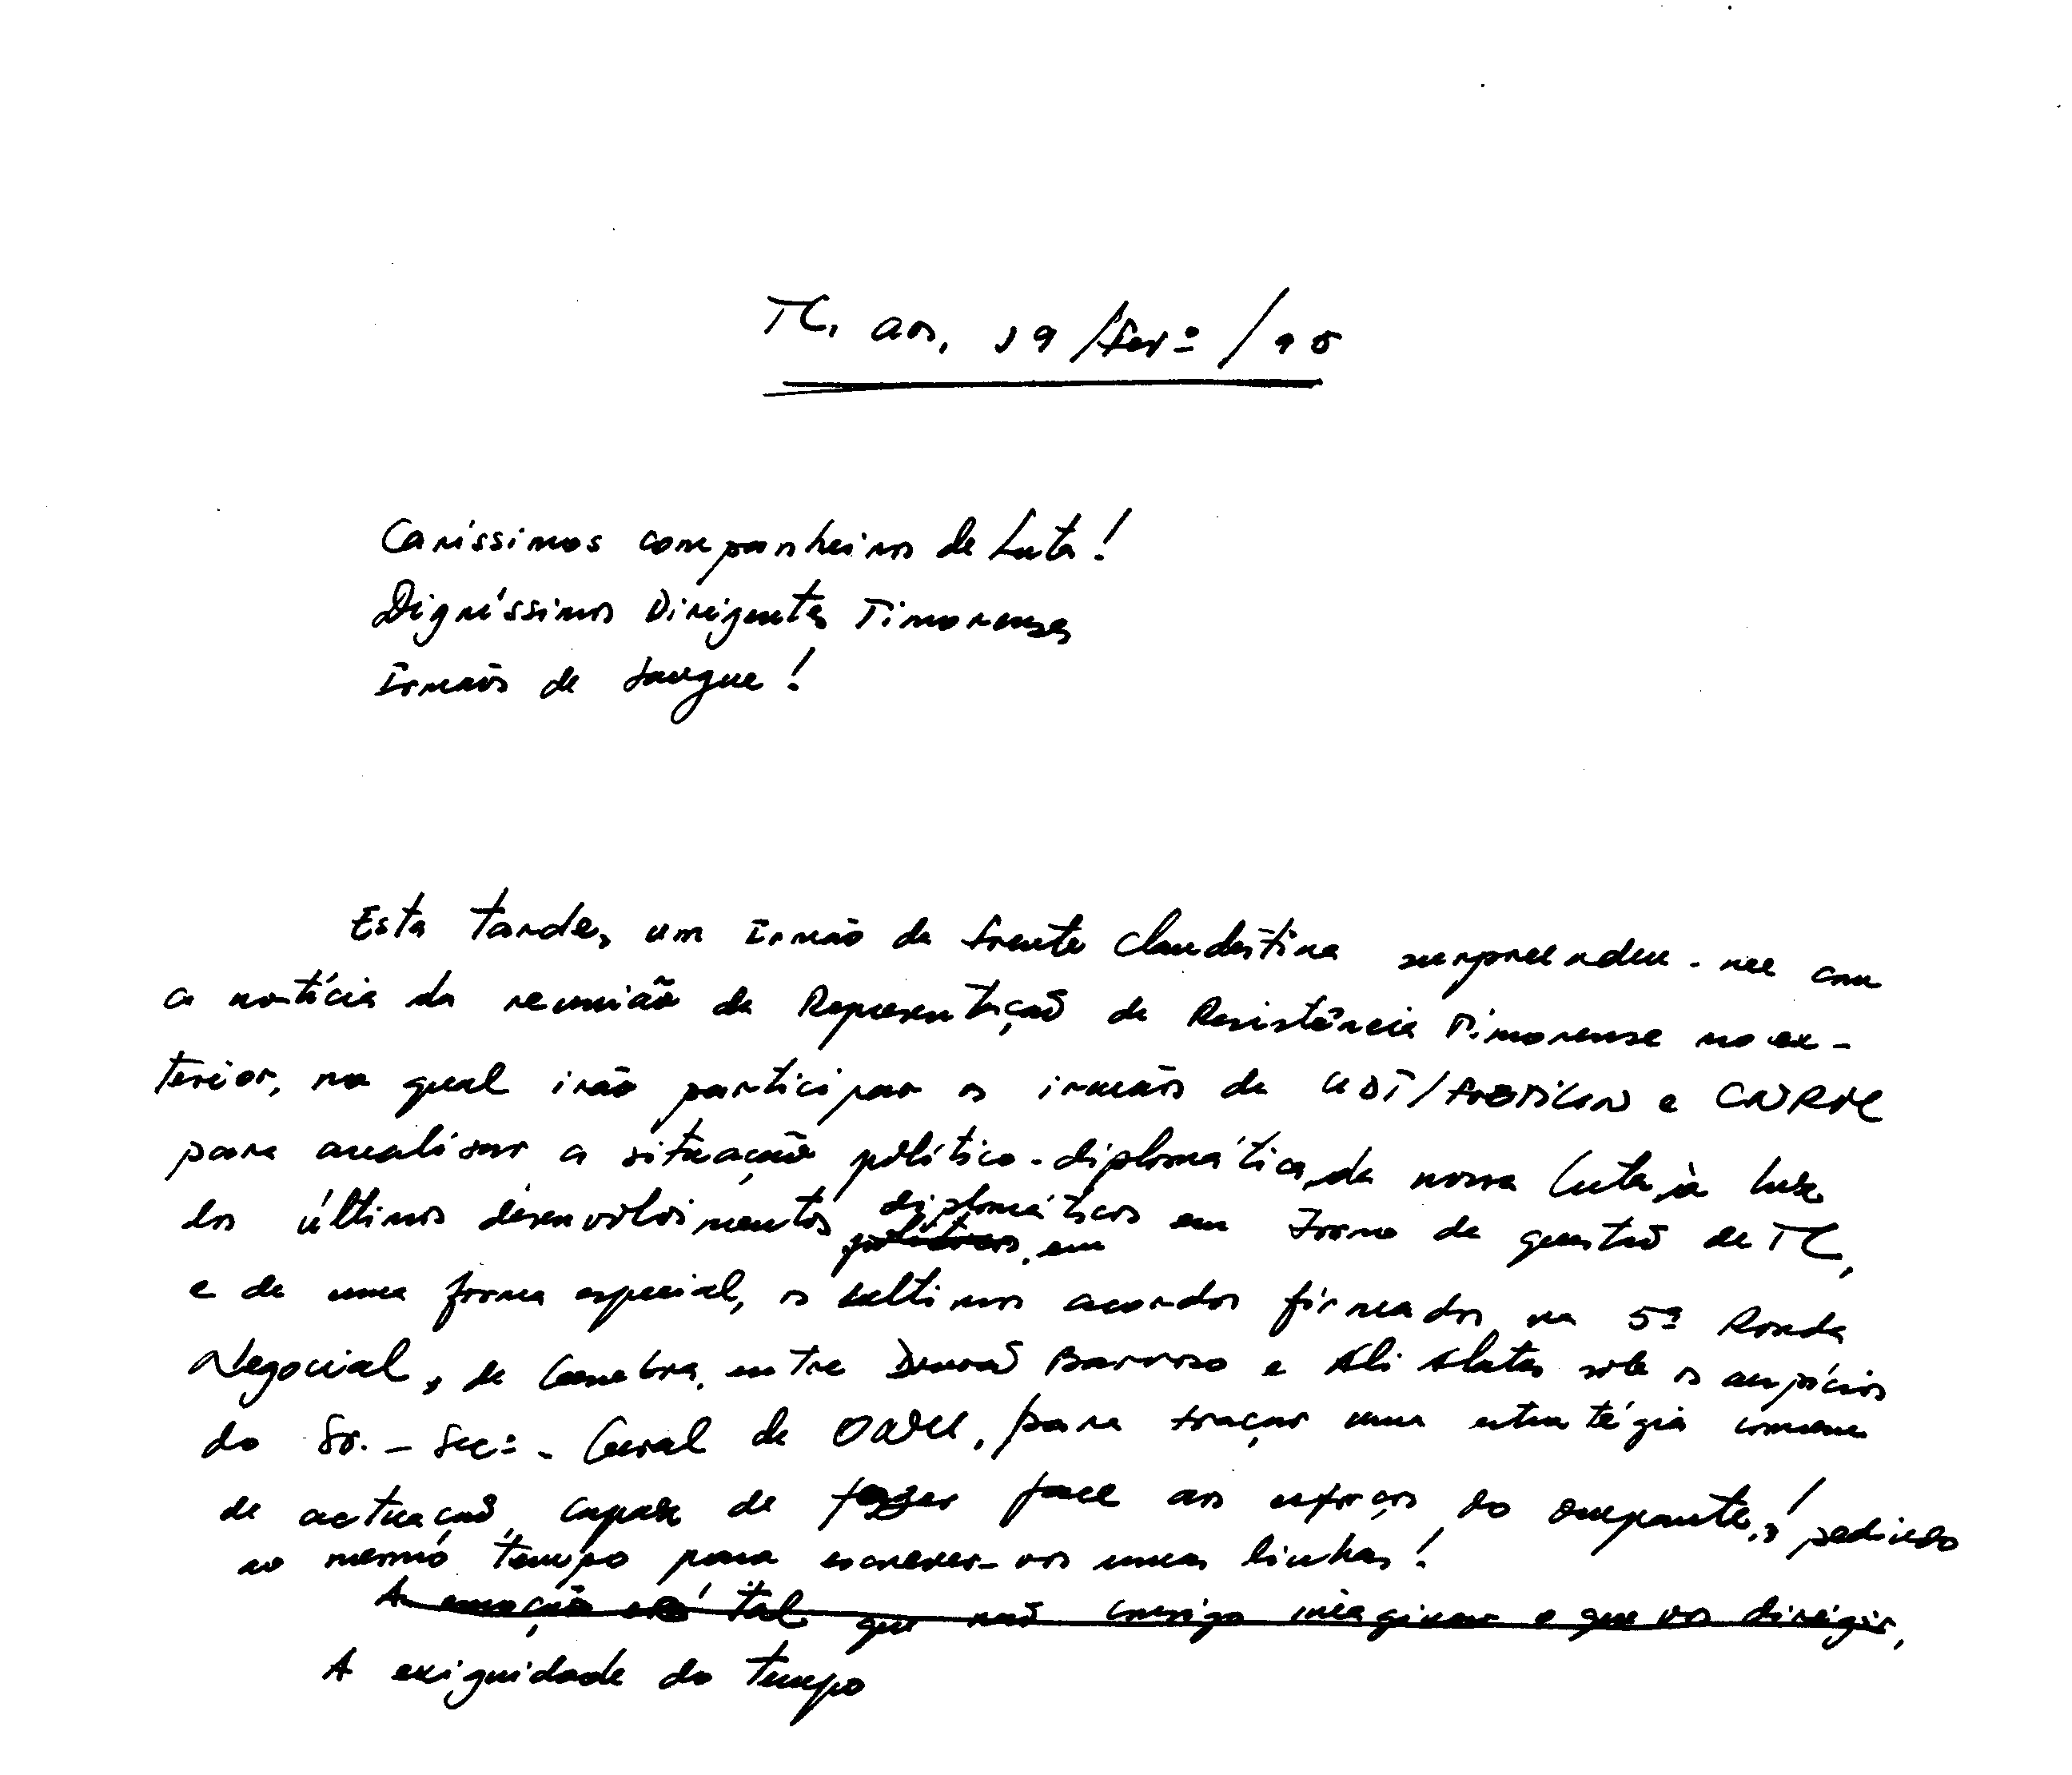 TL, aos, 19/Fevº/95
Caríssimos companheiros de Luta!
Digníssimos Dirigentes Timorenses
Irmãos de Sangue!
Esta tarde, um Irmão da frente Clandestina surpreendeu-me com
a notícia da reunião da Representação da Resistência Timorense no ex-
terior, na qual irão participar os irmãos da UDT/FRETILIN e CNRM
para analisar a situação político-diplomática da nossa Luta, à luz
dos últimos desenvolvimentos diplomáticos em torno da questão de TL,
políticos, em
e de uma forma especial, os últimos acordos firmados na 5ª Ronda
Negocial, de Genebra, entre Durão Barroso e Ali Alatas sob os auspícios
do Sr. - Secº - Geral da ONU, para traçar uma estratégia comum
de actuação, capaz de fazer face aos esforços do ocupante,! pedindo
ao mesmo tempo para escrever-vos umas linhas!
A emoção é tal que não consigo imaginar o que vos dirigir,
A exiguidade do tempo